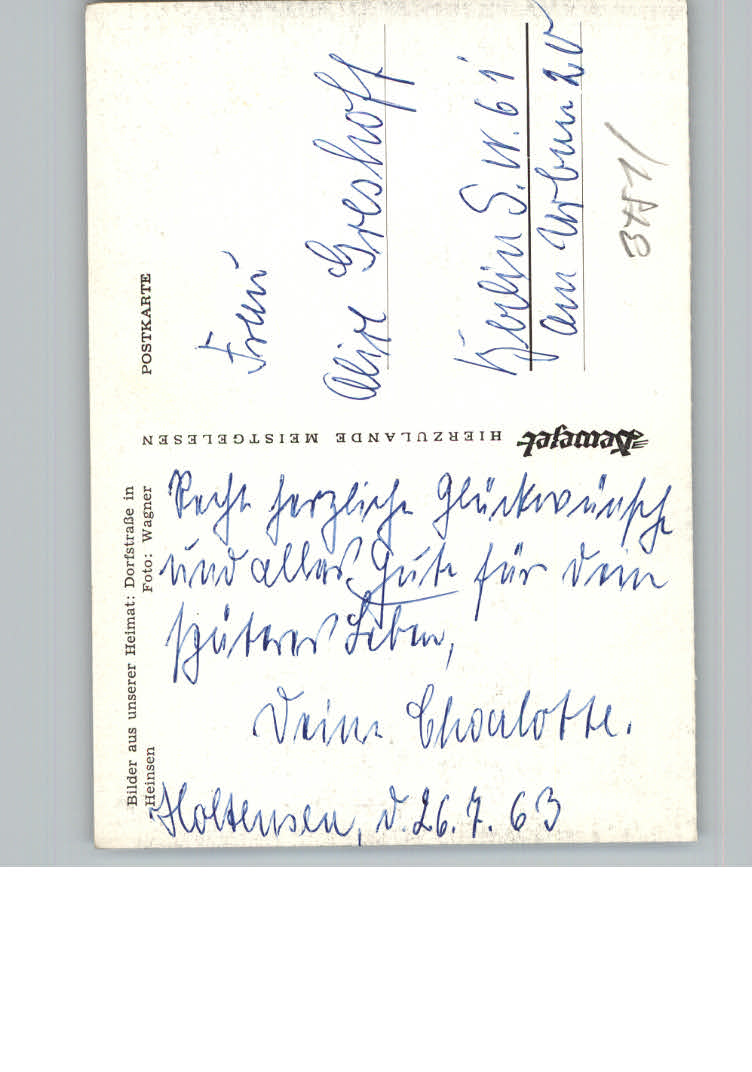 Bilder aus unserer Heimat: Dorfstraße in
Heinsen Foto: Wagner
Recht herzliche Glückwünsche
und alles Gute für Dein
späteres Leben,
Deine Charlotte.
Holtensen, d. 26. 7. 63
Deweget
HIERZULANDE MEISTGELESEN
POSTKARTE
Frau
Alice Greshoff
Berlin S.W. 61
am Urban 20